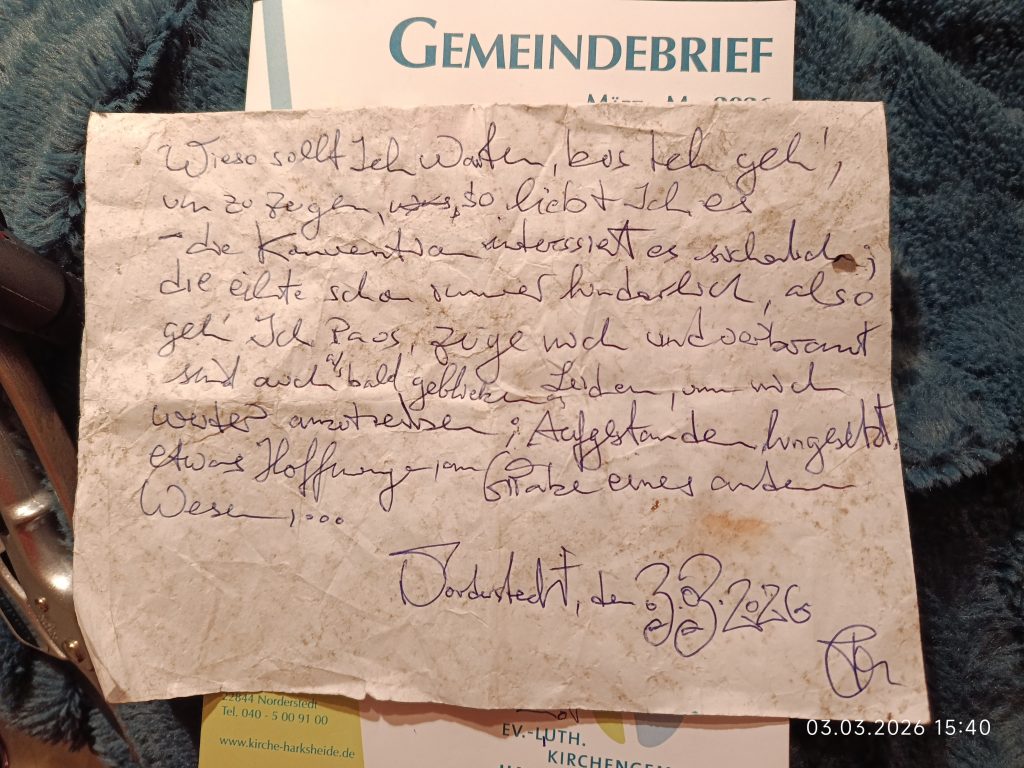 GEMEINDEBRIEF
Wieso sollt Ich warten, bis Ich geh',
um zu zügen, so liebt Ich es
- die Konvention interssiert es sicherlich;
die eilte schon immer hinderlich, also
geh' Ich Paos, züge mich und verbrannt
sind auch bald Leiden, um mich
weiter anzutreiben; Aufgestanden, hingesetzt,
etwas Hoffnunge, am Grabe eines andern
Wesen, ...
Norderstedt, den 3.3.2026
22844 Norderstedt
Tel. 040 - 5 00 91 00
www.kirche-harksheide.de
EV.-LUTH.
03.03.2026 15:40